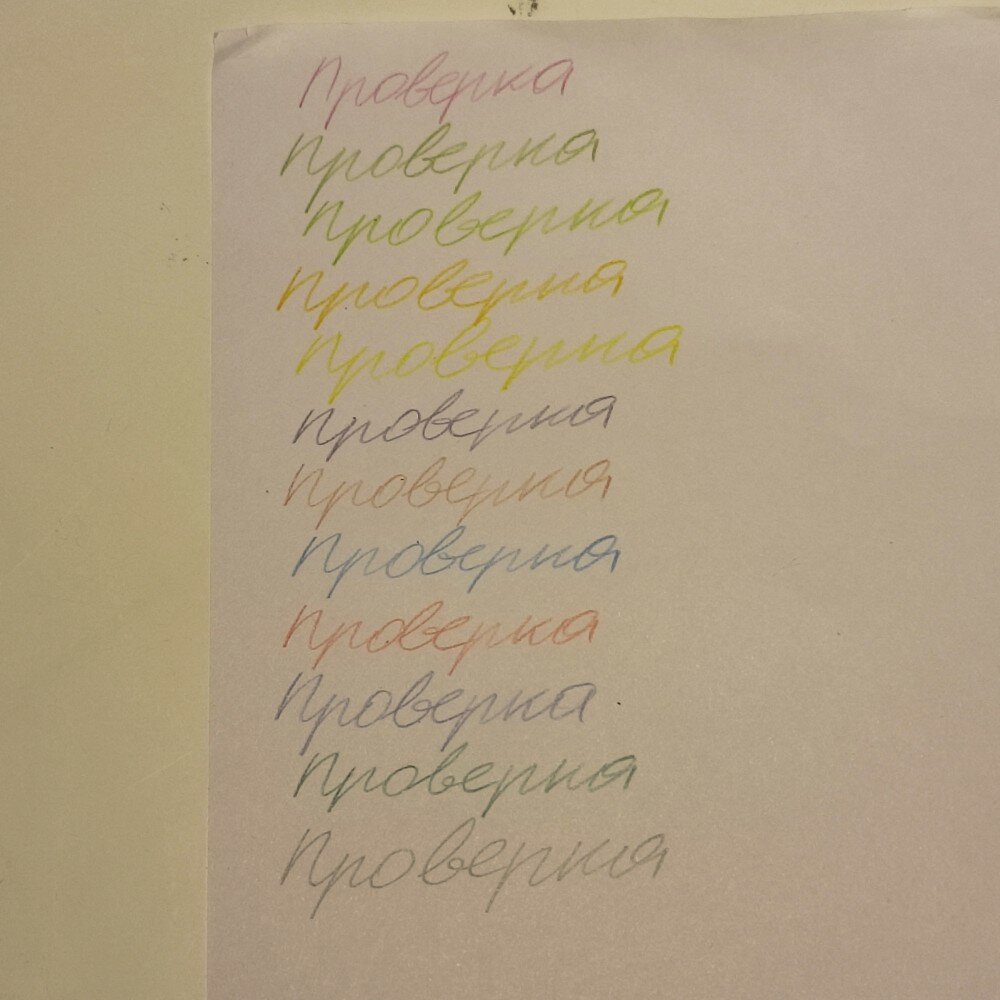 Проверка
Проверка
Проверка
Проверка
Проверка
Проверка
Проверка
Проверка
Проверка
Проверка
Проверка
Проверка